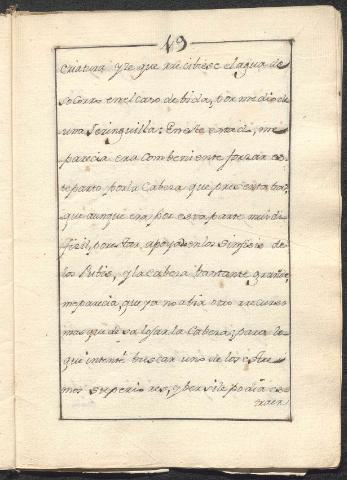 49
criatura, y se que rrecibiese el agua de
socorro en el caso de bida, por medio de
una Seringuilla: En este estado, me
parecia era combeniente forzar es-
te parto por la Cabeza que presentaba,
que aunque era por esta parte mui di-
ficil, por estar apoyada en los sinfisis de
los Pubis, y la Cabeza bastante grande,
me parecia, que ya no abia otro rrecurso
mas que desalojar la Cabeza; para lo
que intenté buscar uno de los estre-
mos superiores, y ber si le podia es-
traer